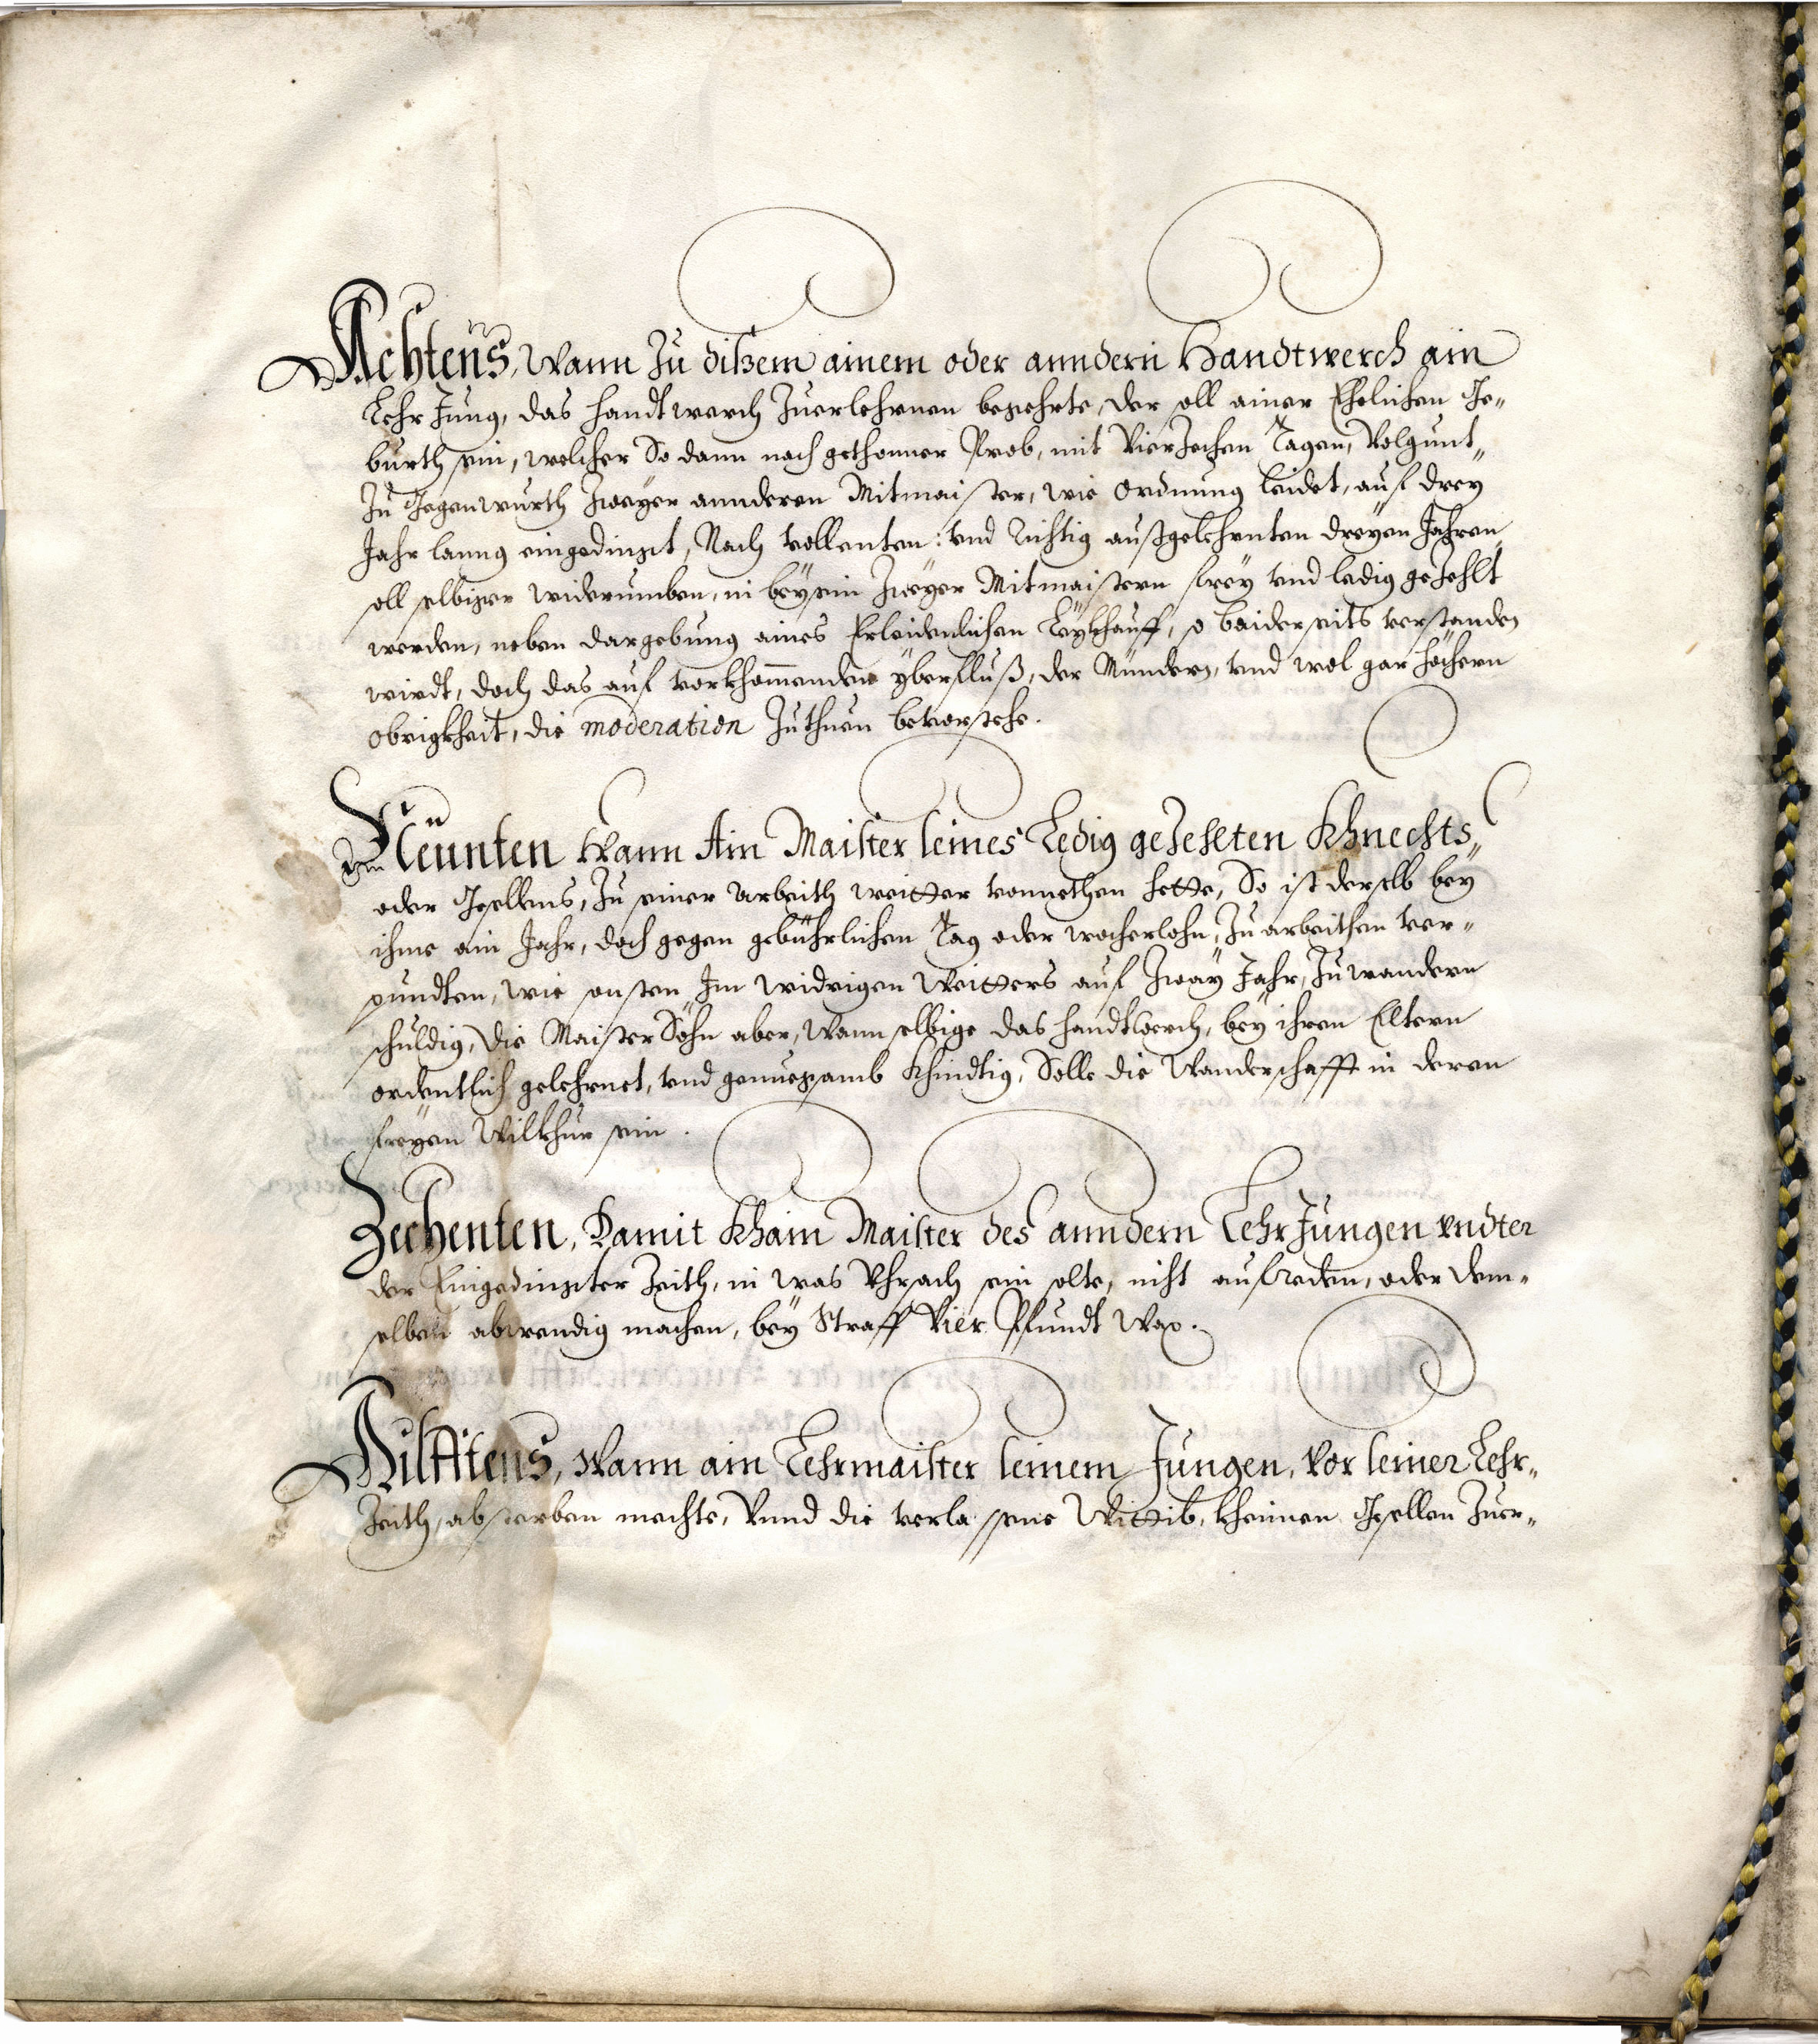 Achtens, Wann Zu dißem ainem oder anndern Handtwerch ain
Lehr Jung, das handtwerch Zuerlehrnen begehrte, der soll ainer Ehelichen Ge„
burth sein, welcher So dann nach gethonner Prob, mit Vierzechen Tagen, Volgunt„
Zu Gegenwurth Zweyer annderen Mitmaister, wie ordnung leidet, auf drey
Jahr lanng eingedingt, Nach vollenten: vnd Richtig außgelehrnten dreyen Jahren,
soll selbiger widerumben, in beysein Zweyer Mitmaistern frey vnd ledig gezehlt
werden, neben dargebung aines Erleidenlichen Leykhauff, so beiderseits verstanden
wirdt, doch das auf vorkhommenden yberfluß, der Mündern, vnd wol gar höchern
obrigkheit, die moderation Zuthuen bevorstehe.
Zum Neunten Wann Ain Maister seines Ledig gezehlten Khnechts„
oder Gesellens, Zu seiner Arbeith weitter vonnethen hette, So ist derselb bey
ihme ain Jahr, doch gegen gebührlichen Tag oder wocherlohn, Zu arbeithen ver„
pundten, wie sonsten Im widrigen Weitters auf Zway Jahr, Zu wandern
schuldig, Die Maister Söhn aber, Wann selbige das handtwerch, bey ihren Elltern
ordentlich gelehrnet, vnd genuegsamb Khindtig, Solle die Wanderschafft in deren
freyen Wilkhur sein.
Zechenten, Damit Khain Maister des anndern LehrJungen vndter
der Eingedingter Zeith, in was Vhrsach sein solte, nicht aufreden, oder dem„
selben abwendig machen, bey Straff Vier Pfundt Wax.
Ailfftens, Wann ain Lehrmaister seinem Jungen, Vor seiner Lehr„
Zeith, absterben mechte, Vnnd die verlassene Wittib, kheinen Gesellen Zuer„